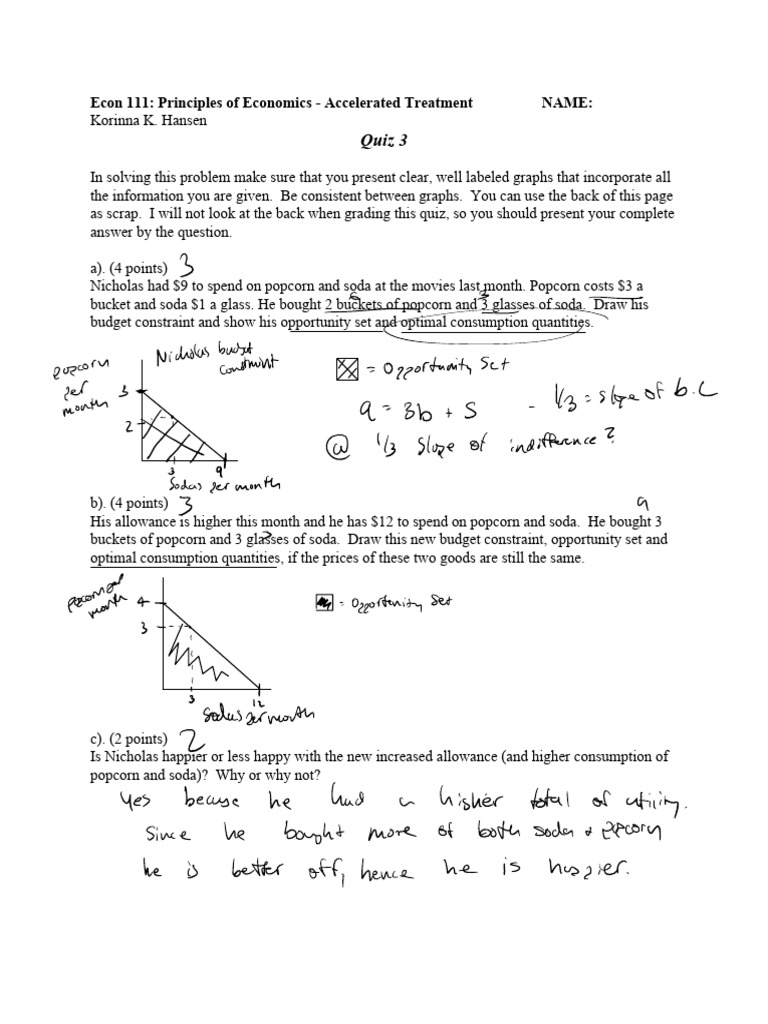 Econ 111: Principles of Economics - Accelerated Treatment NAME:
Korinna K. Hansen
Quiz 3
In solving this problem make sure that you present clear, well labeled graphs that incorporate all
the information you are given. Be consistent between graphs. You can use the back of this page
as scrap. I will not look at the back when grading this quiz, so you should present your complete
answer by the question.
a). (4 points) 3
Nicholas had $9 to spend on popcorn and soda at the movies last month. Popcorn costs $3 a
bucket and soda $1 a glass. He bought 2 buckets of popcorn and 3 glasses of soda. Draw his
budget constraint and show his opportunity set and optimal consumption quantities.
popcorn
per
month
Nicholas budget
constraint
3
2
3 9
Sodas per month
= Opportunity Set
9 = 3b + S - 1/3 = slope of b.c
@ 1/3 slope of indifference?
b). (4 points) 3 9
His allowance is higher this month and he has $12 to spend on popcorn and soda. He bought 3
buckets of popcorn and 3 glasses of soda. Draw this new budget constraint, opportunity set and
optimal consumption quantities, if the prices of these two goods are still the same.
month
4
3
3 12
Sodas per month
= Opportunity Set
c). (2 points) 2
Is Nicholas happier or less happy with the new increased allowance (and higher consumption of
popcorn and soda)? Why or why not?
Yes because he had a higher total of utility.
Since he bought more of both soda + popcorn
he is better off, hence he is happier.